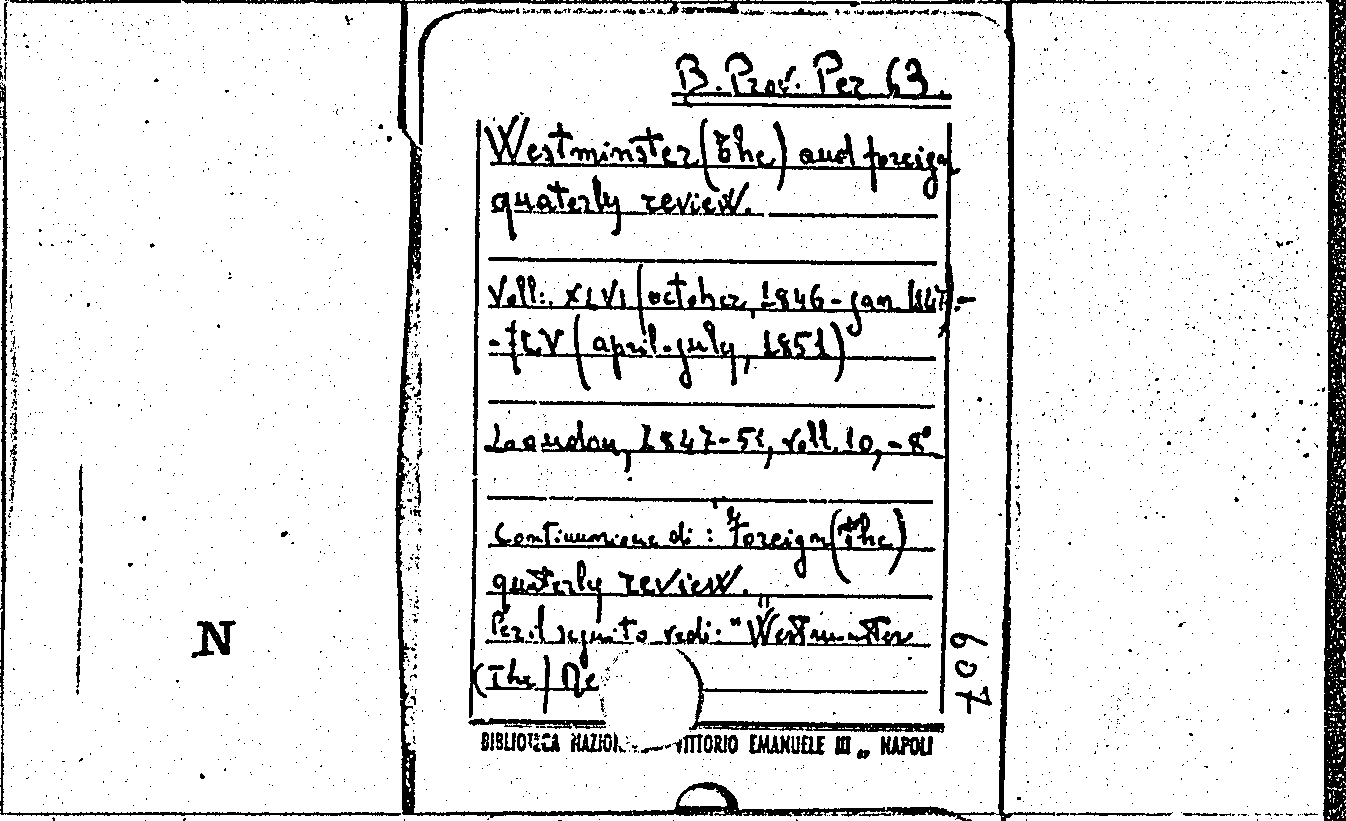 B. Prov. Per 63.
Westminster (the) and foreign
quaterly review.
Voll: XLVI (october, 1846 - jan. 1847) -
- LV (april-july, 1851)
London, 1847-51, voll. 10, - 8°
Continuazione di: Foreign (the)
quaterly review.
Per il seguito vedi: "Westminster
(The)
607
N
BIBLIOTECA NAZION VITTORIO EMANUELE III „ NAPOLI